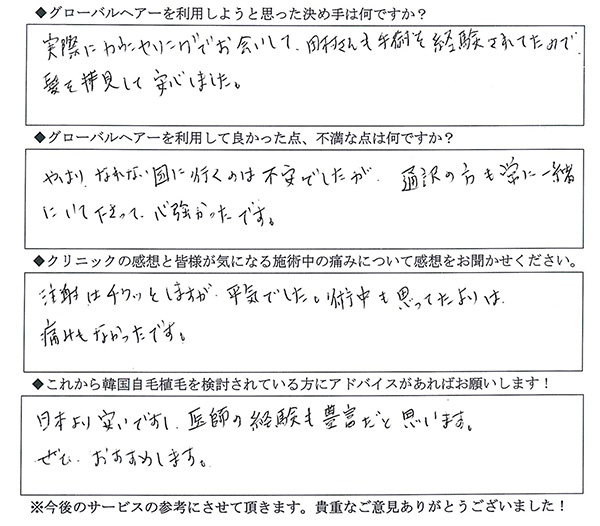 ◆グローバルヘアーを利用しようと思った決め手は何ですか？
実際にカウンセリングでお会いして、田村さんも手術を経験されてたので、
髪を拝見して安心しました。
◆グローバルヘアーを利用して良かった点、不満な点は何ですか？
やはり、なれない国に行くのは不安でしたが、通訳の方も常に一緒
にいて下さって、心強かったです。
◆クリニックの感想と皆様が気になる施術中の痛みについて感想をお聞かせください。
注射はチクッとしますが、平気でした。術中も思ってたよりは、
痛みもなかったです。
◆これから韓国自毛植毛を検討されている方にアドバイスがあればお願いします！
日本より安いですし、医師の経験も豊富だと思います。
ぜひ、おすすめします。
※今後のサービスの参考にさせて頂きます。貴重なご意見ありがとうございました！